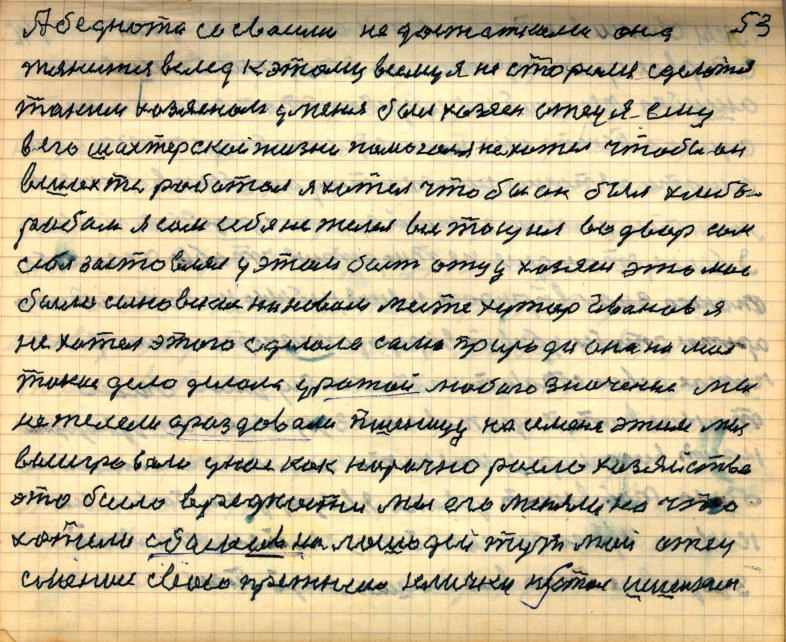 А беднота со своими не достатками она 53
тянится вслед к этому всему я не сторался сделатся
таким хозяеном у меня был хозяен отец я ему
в его шахтерской жизни помогал я не хотел чтобы он
в шахте работал я хотел чтобы он был хлебо-
робам я сам себя не жалел вытокнул во двор сам
себя заставлял у этом быт отцу хозяен это мое
было сыновское на новам месте хутар Иванов я
не хотел этого сделала сама природа она на мае
такие дело делала урожай любого значение мы
не желели а раздовали пшеницу на семена этим мы
выигровали у нас как нарочно росло хозяйства
это было в редкости мы его меняли на что
хотели с быков на лошадей тут мой отец
сменил своего прежнего клички